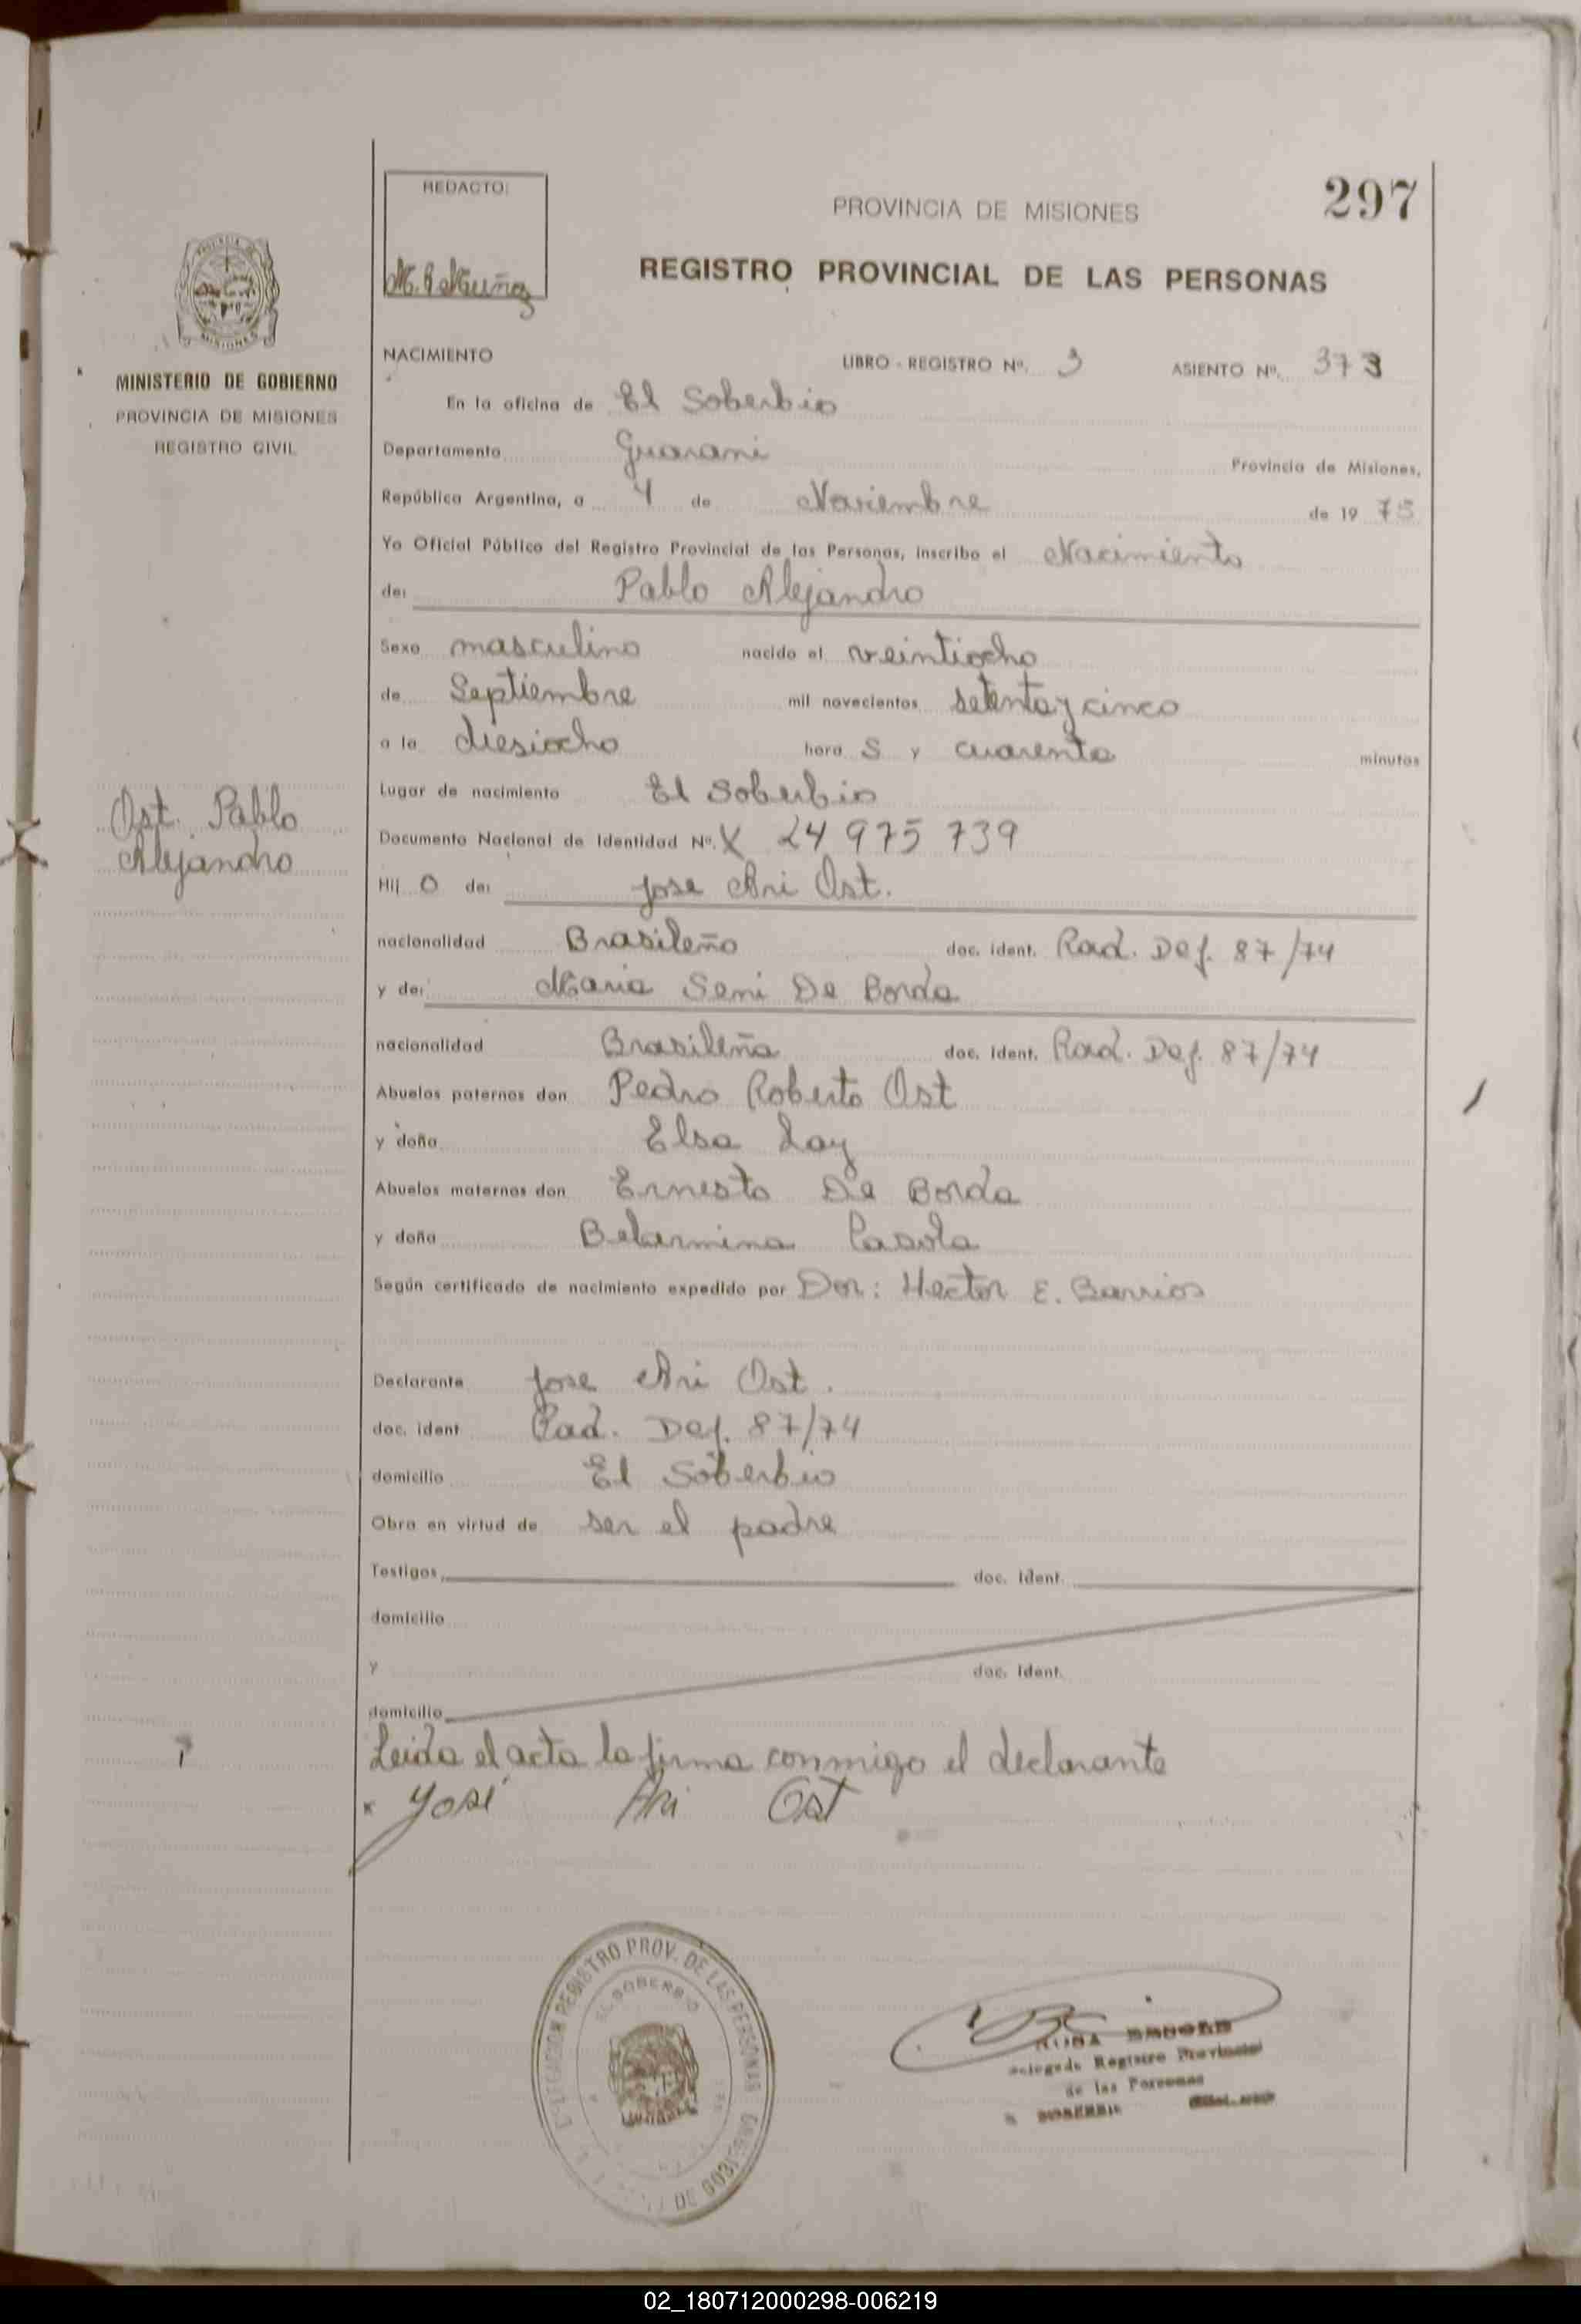 297
REDACTO:
PROVINCIA DE MISIONES
REGISTRO PROVINCIAL DE LAS PERSONAS
MINISTERIO DE GOBIERNO
PROVINCIA DE MISIONES
REGISTRO CIVIL
NACIMIENTO LIBRO - REGISTRO Nº. 3 ASIENTO Nº. 373
En la oficina de El Soberbio
Departamento Guarani Provincia de Misiones,
República Argentina, a 4 de Noviembre de 19 75
Yo Oficial Público del Registro Provincial de las Personas, inscribo el Nacimiento
de: Pablo Alejandro
Sexo masculino nacido el veintiocho
de Septiembre mil novecientos setenta y cinco
a la diesiocho hora S y cuarenta minutos
Lugar de nacimiento El Soberbio
Ost. Pablo
Alejandro
Documento Nacional de Identidad Nº. X 24 975 739
Hij o de: Jose Ari Ost.
nacionalidad Brasileño doc. ident. Rad. Def. 87/74
y de: Maria Seni De Borda
nacionalidad Brasileña doc. ident. Rad. Def. 87/74
Abuelos paternos don Pedro Roberto Ost
y doña Elsa Lay
Abuelos maternos don Ernesto De Borda
y doña Belarmina
Según certificado de nacimiento expedido por Dor: Hector E. Barrios
Declarante Jose Ari Ost.
doc. ident Rad. Def. 87/74
domicilio El Soberbio
Obra en virtud de ser el padre
Testigos doc. ident.
domicilio
y doc. ident.
domicilio
Leida el acta la firma conmigo el declarante
José Ari Ost
REGISTRO PROV. DE LAS PERSONAS
EL SOBERBIO
Delegado Registro Provincial
de las Personas
02_180712000298-006219